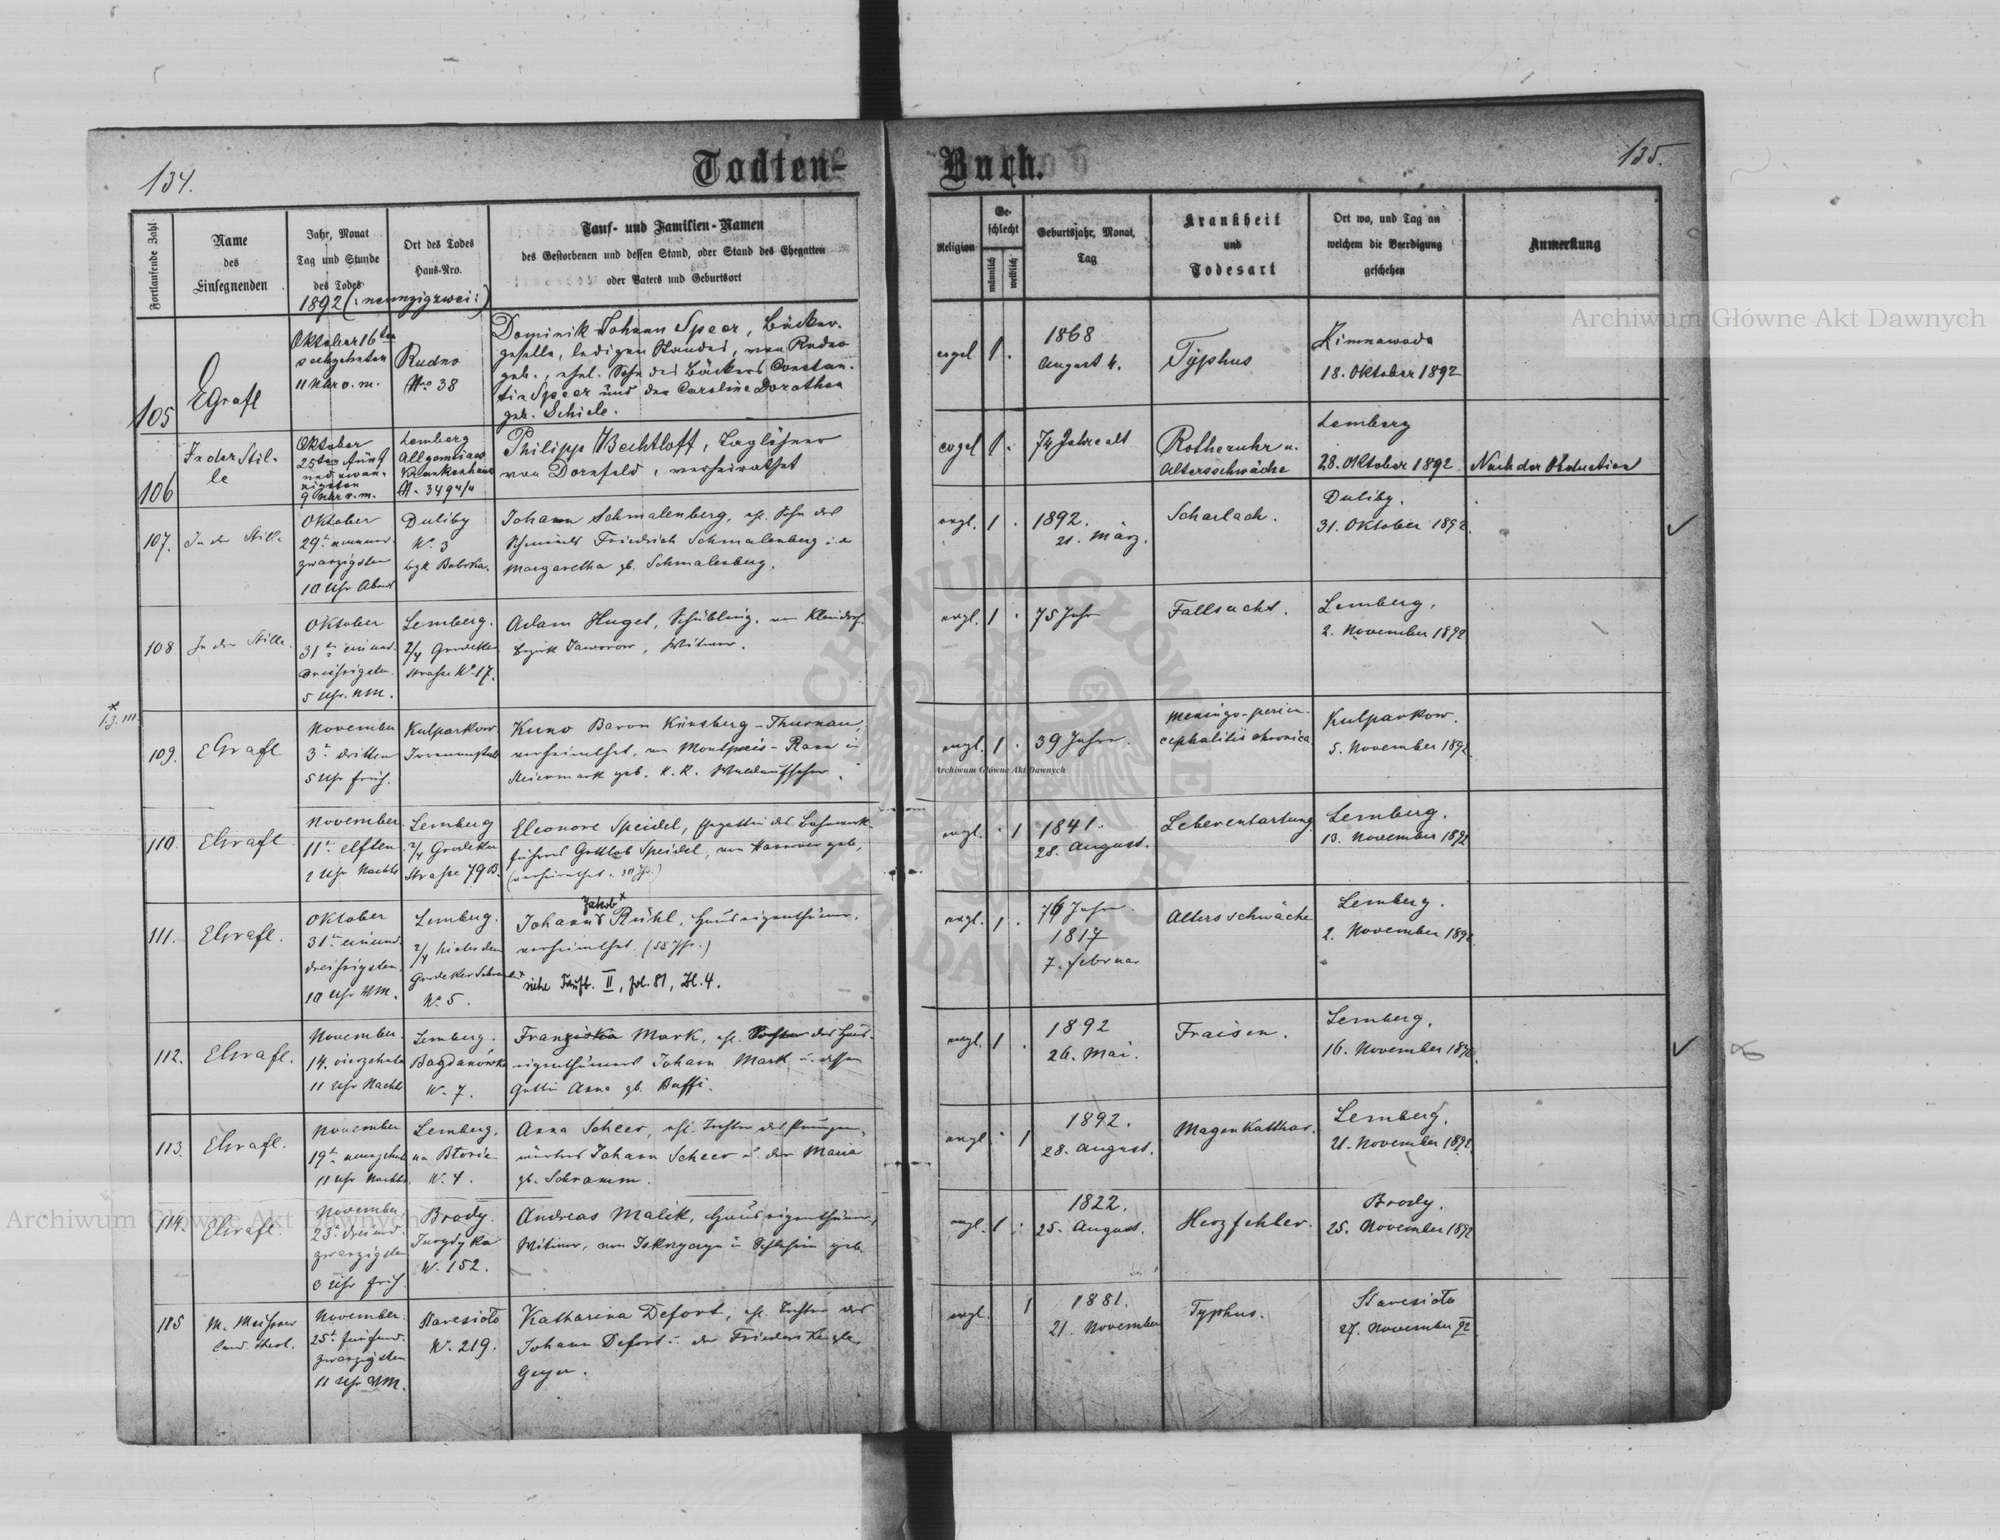 134.
Todten-
Buch.
135.
Fortlaufende Zahl
Name
des
Einsegnenden
Jahr, Monat
Tag und Stunde
des Todes
Ort des Todes
Haus-Nro.
Tauf- und Familien-Namen
des Gestorbenen und dessen Stand, oder Stand des Ehegatten
oder Vaters und Geburtsort
Religion
Ge-
schlecht
männlich
weiblich
Geburtsjahr, Monat,
Tag
Krankheit
und
Todesart
Ort wo, und Tag an
welchem die Beerdigung
geschehen
Anmerkung
1892 (: neunzigzwei :)
105
EGrafl
Oktober 16ten
sechzehnten
11 Uhr v. m.
Rudno
Nro 38
Dominik Johann Speer, Bäcker-
geselle, ledigen Standes, von Rudno
geb., ehel. Sohn des Bäckers Constan-
tin Speer und der Caroline Dorothea
geb. Schiele.
evgel
1
1868
August 4.
Typhus
Zimnawoda
18. Oktober 1892
106
In der Stil-
le
Oktober
25ten fünf
und zwan-
zigsten
9 Uhr v. m.
Lemberg
Allgemeines
Krankenhaus
Philipp Bechtloff, Taglöhner
von Dornfeld, verheirathet
evgel
1
74 Jahre alt
Rotheruhr u.
Altersschwäche
Lemberg
28. Oktober 1892
Nach der Obduction
107.
In der Stille
Oktober
29t neunund-
zwanzigsten
10 Uhr Abend
Duliby
No. 3
bzk Bobrka.
Johann Schmalenberg, ehl. Sohn des
Friedrich Schmalenberg u. d.
Margaretha gb. Schmalenberg.
evgl.
1
1892.
21. März.
Scharlach.
Duliby.
31. Oktober 1892.
108
In der Stille.
Oktober
31t einund-
dreissigsten
5 Uhr. NM.
Lemberg.
2/4 Grodeker
Strasse No 17.
Adam Huget, von Kleindorf.
Bezirk Jaworow, Witwer.
evgl.
1
75 Jahr
Fallsucht.
Lemberg,
2. November 1892
109.
EGrafl
November
3t dritten
5 Uhr früh.
Kulparkow
Irrenanstalt
Kuno Baron Künsberg-Thurnau,
verheirathet, von Montpreis-Rann in
Steiermark geb. K. K. Waldaufseher.
evgl.
1
39 Jahre.
Meningo-perien-
cephalitis chronica
Kulparkow.
5. November 1892
110.
EGrafl
November
11t elften
2 Uhr Nachts
Lemberg
2/4 Grodeker
Strasse 79B.
Eleonore Speidel, Ehegattin des Bahnwerk-
führers Gottlob Speidel, von Hannover geb,
evgl.
1
1841.
28. August.
Leberentartung
Lemberg.
13. November 1892
111.
EGrafl.
Oktober
31t einund-
dreissigsten
10 Uhr NM.
Lemberg.
2/4 hinter dem
Grodeker Schranken
No. 5.
Jakob
Johann Rühl, Hauseigenthümer,
verheirathet. (58 Jhr.)
siehe Taufb. II, fol. 81, Zl. 4.
evgl.
1
76 Jahre
1817
7. Februar
Altersschwäche
Lemberg.
2. November 1892
112.
EGrafl.
November
14. vierzehnten
11 Uhr Nachts
Lemberg.
Bogdanówka
No. 7.
Franziska Mark, ehl. Tochter des Haus-
eigenthümers Johann Mark u. dessen
Gattin Anna gb. Buffi.
evgl.
1
1892
26. Mai.
Fraisen.
Lemberg,
16. November 1892
113.
EGrafl.
November
11 Uhr Nachts.
Lemberg,
na Błonie
No. 4.
Anna Scheer, ehl. Tochter des
Johann Scheer u. der Maria
gb. Schramm.
evgl.
1
1892.
28. August.
Magenkatthar.
Lemberg.
21. November 1892
114.
EGrafl.
November
23t dreiund-
zwanzigsten
3 Uhr früh.
Brody.
Jurydyka
No. 152.
Andreas Malik, Hauseigenthümer,
Witwer, von in Schlesien geb.
evgl.
1
1822.
25. August.
Herzfehler.
Brody.
25. November 1892
115
M. Meissner
Cand. theol.
November
25t fünfund-
zwanzigsten
11 Uhr NM.
Stavesioto
No. 219.
Katharina Defort, ehl. Tochter des
Johann Defort u. der Friederike gb.
Geyer.
evgl.
1
1881.
21. November
Typhus.
Stavesioto
27. November 92
Archiwum Główne Akt Dawnych
Archiwum Główne Akt Dawnych
Archiwum Główne Akt Dawnych
ARCHIWUM GŁÓWNE AKT DAWNYCH